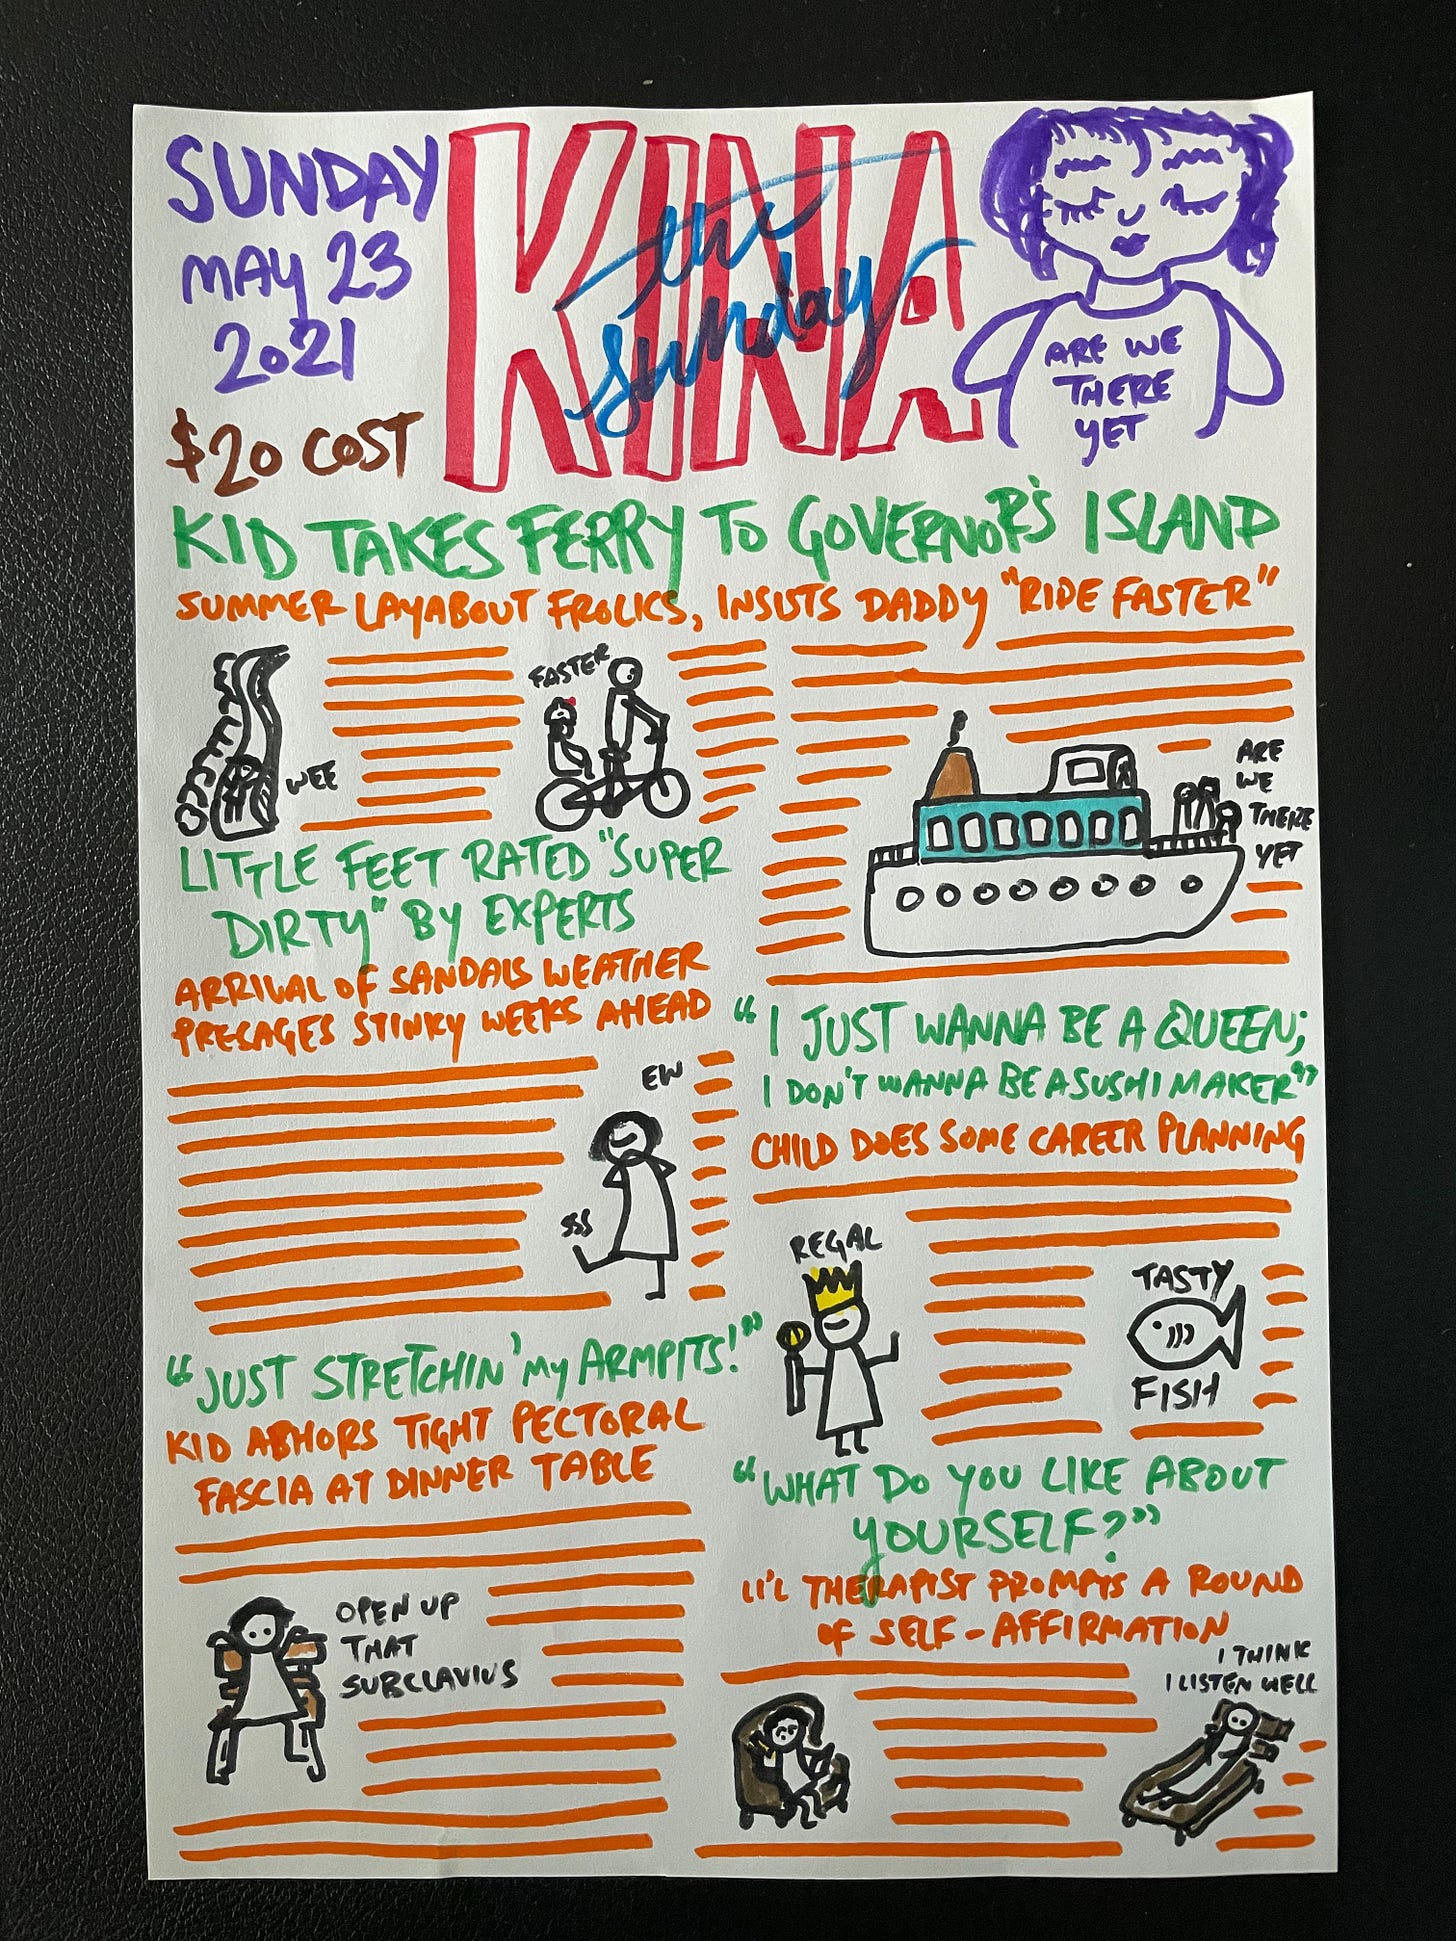 SUNDAY
MAY 23
2021
$20 COST
KINA
the
sunday
ARE WE
THERE
YET
KID TAKES FERRY TO GOVERNOR'S ISLAND
SUMMER LAYABOUT FROLICS, INSISTS DADDY "RIDE FASTER"
WEE
FASTER
ARE
WE
THERE
YET
LITTLE FEET RATED "SUPER
DIRTY" BY EXPERTS
ARRIVAL OF SANDALS WEATHER
PRESAGES STINKY WEEKS AHEAD
EW
SSS
"JUST STRETCHIN' MY ARMPITS!"
KID ABHORS TIGHT PECTORAL
FASCIA AT DINNER TABLE
OPEN UP
THAT
SUBCLAVIUS
"I JUST WANNA BE A QUEEN;
I DON'T WANNA BE A SUSHI MAKER"
CHILD DOES SOME CAREER PLANNING
REGAL
TASTY
FISH
"WHAT DO YOU LIKE ABOUT
YOURSELF?"
LI'L THERAPIST PROMPTS A ROUND
OF SELF-AFFIRMATION
I THINK
I LISTEN WELL